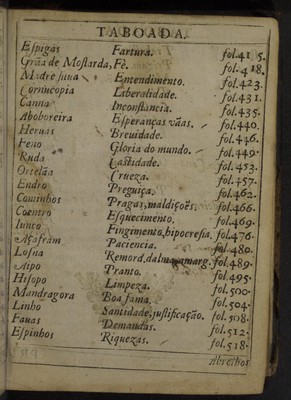 TABOADA.
Espigas Fartura. fol.415.
Grãa de Mostarda, Fè. fol.418.
Madre silua Entendimento. fol.423.
Cornucopia Liberalidade. fol.431.
Canna Inconstancia. fol.435.
Aboboreira Esperanças vãas. fol.440.
Heruas Breuidade. fol.446.
Feno Gloria do mundo. fol.449.
Ruda Castidade. fol.453.
Ortelãa Crueza. fol.457.
Endro Preguiça. fol.462.
Cominhos Pragas, maldiçoẽs. fol.466.
Coentro Esquecimento. fol.469.
Iunco Fingimento, hipocresia. fol.476.
Açafram Paciencia. fol.480.
Losna Remord, dalma, amarg. fol.489.
Aipo Pranto. fol.495.
Hisopo Limpeza. fol.500.
Mandragora Boa fama. fol.504.
Linho Santidade, justificação. fol.508.
Fauas Demandas. fol.512.
Espinhos Riquezas. fol.518.
Abrolhos